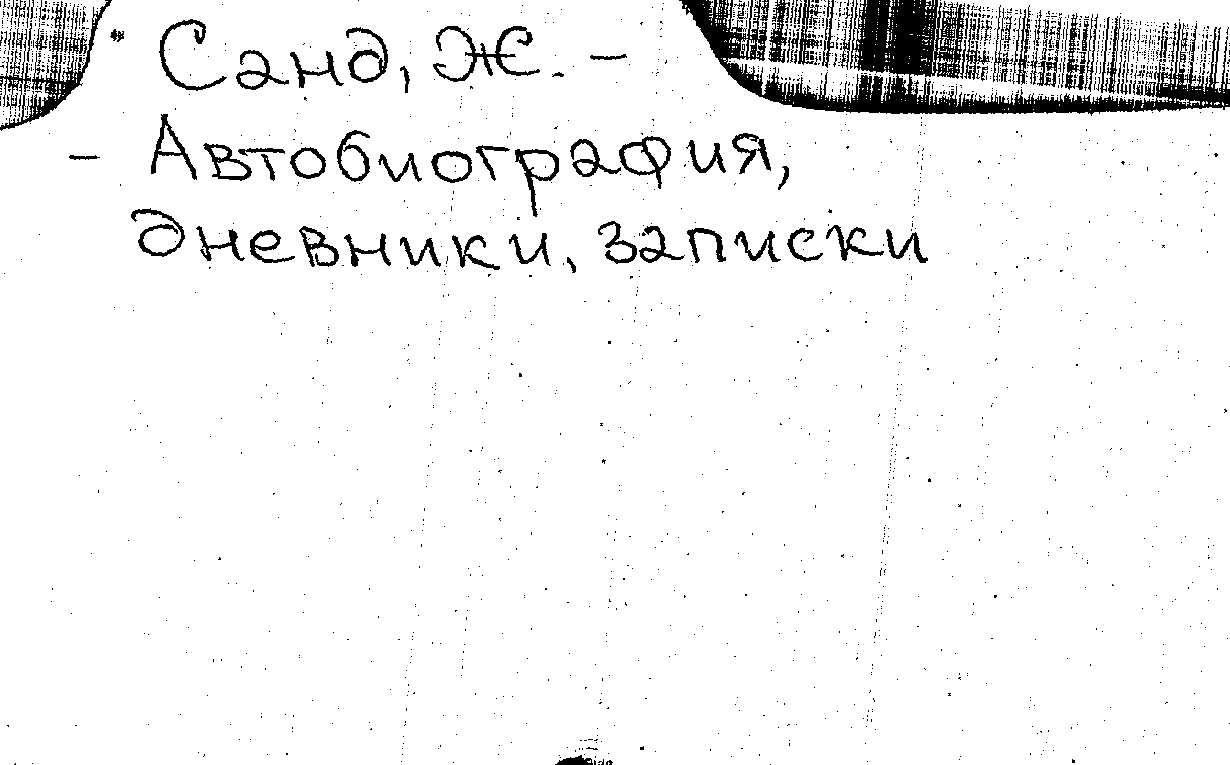 Санд, Ж. –
– Автобиография,
дневники, записки